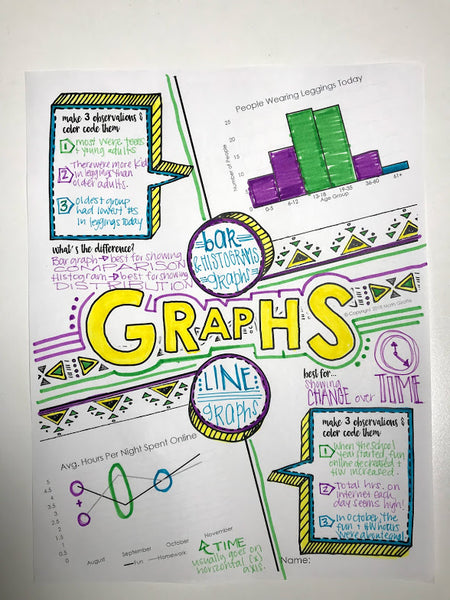 make 3 observations &
color code them
1 most were teens
+ young adults
2 There were more kids
in leggings than
older adults.
3 oldest group
had lowest #s
in leggings today
People Wearing Leggings Today
Number of People
25
20
15
10
5
0
0-5
6-12
13-18
19-35
36-60
61+
Age Group
what's the difference?
Bar graph → best for showing
COMPARISON
Histogram → best for showing
DISTRIBUTION
bar
& HISTOGRAMS
graphs
GRAPHS
LINE
graphs
best for...
showing
CHANGE over
TIME
make 3 observations &
color code them
1 When the school
year started, fun
online decreased +
HW increased.
2 Total hrs. on
internet each
day seems high!
3 In October, the
fun + HW hours
were about equal
Avg. Hours Per Night Spent Online
5
4.5
4
3.5
3
2.5
2
1.5
1
0.5
0
August
September
October
November
Fun
Homework
TIME
usually goes on
horizontal (x)
axis.
Name: